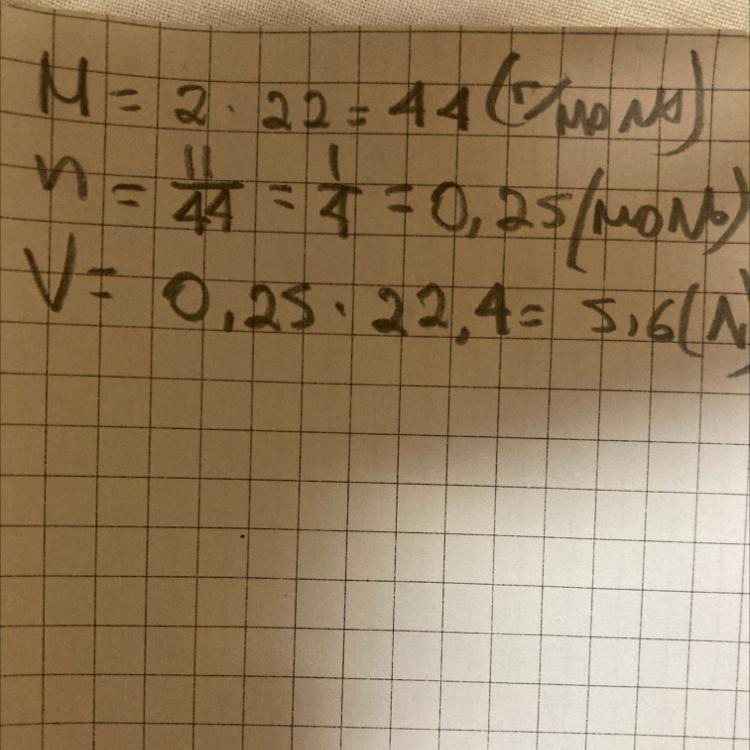 M = 2 · 22 = 44 (г/моль)
n = 11/44 = 1/4 = 0,25 (моль)
V = 0,25 · 22,4 = 5,6 (л)